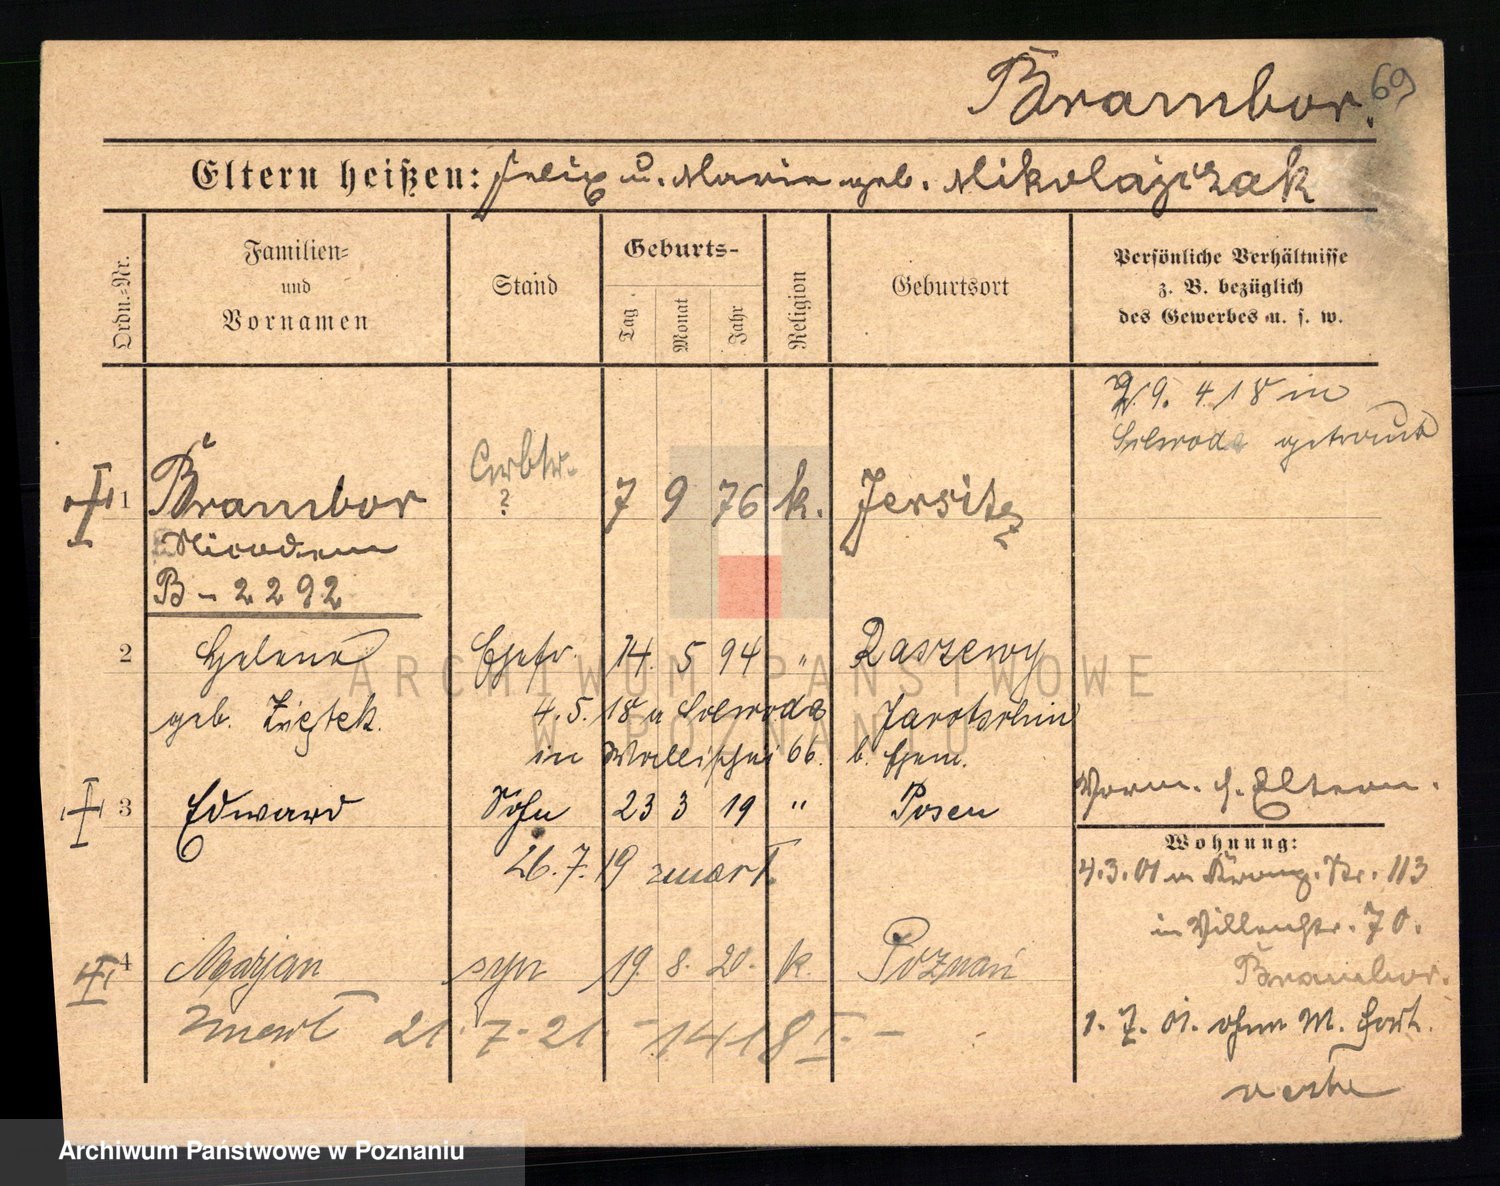 Brambor.
69
Eltern heißen: Felix u. Marie geb. Mikolajczak
Ordn.-Nr.
Familien-
und
Vornamen
Stand
Geburts-
Tag
Monat
Jahr
Religion
Geburtsort
Persönliche Verhältnisse
z. B. bezüglich
des Gewerbes u. s. w.
9. 4. 18 in
getraut
1 Brambor ? 7 9 76 k. Jersitz
Nicodem
B - 2292
2 Helene Ehefr. 14. 5 94 " Raszewy
geb. Ziętek. 4. 5. 18 Jarotschin
in Wallischei 66. b. Ehem.
3 Edward Sohn 23 3 19 " Posen
Vorm. s. Eltern.
26. 7. 19 zmarł
Wohnung:
4. 3. 01 Kronp. Str. 113
in Villenstr. 70.
Brambor.
4 Marjan syn 19. 8. 20. k. Poznań
zmarł 21. 7. 21. - 1418 I. -
1. 7. 01. ohne M. fort.
ARCHIWUM PAŃSTWOWE
W POZNANIU
Archiwum Państwowe w Poznaniu